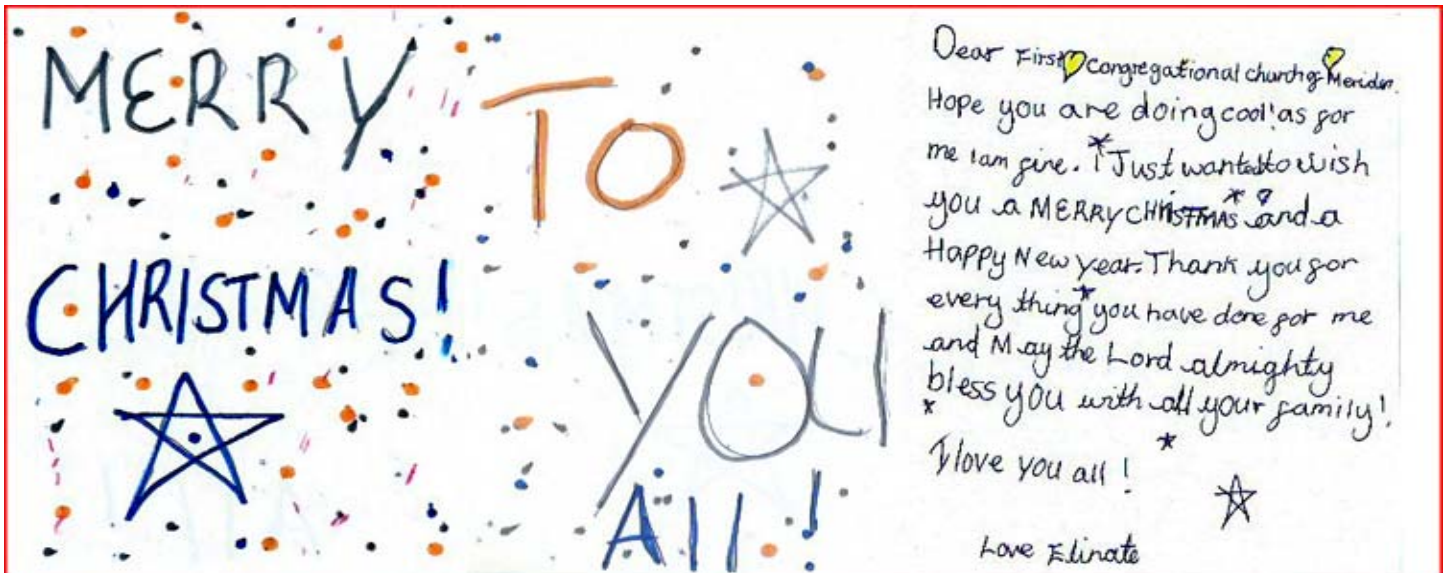 MERRY
CHRISTMAS!
TO
YOU
All!
Dear First Congregational church of Meriden.
Hope you are doing cool! as for
me i am fine. i Just wanted to wish
you a MERRY CHRISTMAS and a
Happy New year. Thank you for
every thing you have done for me
and May the Lord almighty
bless you with all your family!
I love you all!
Love Elinate